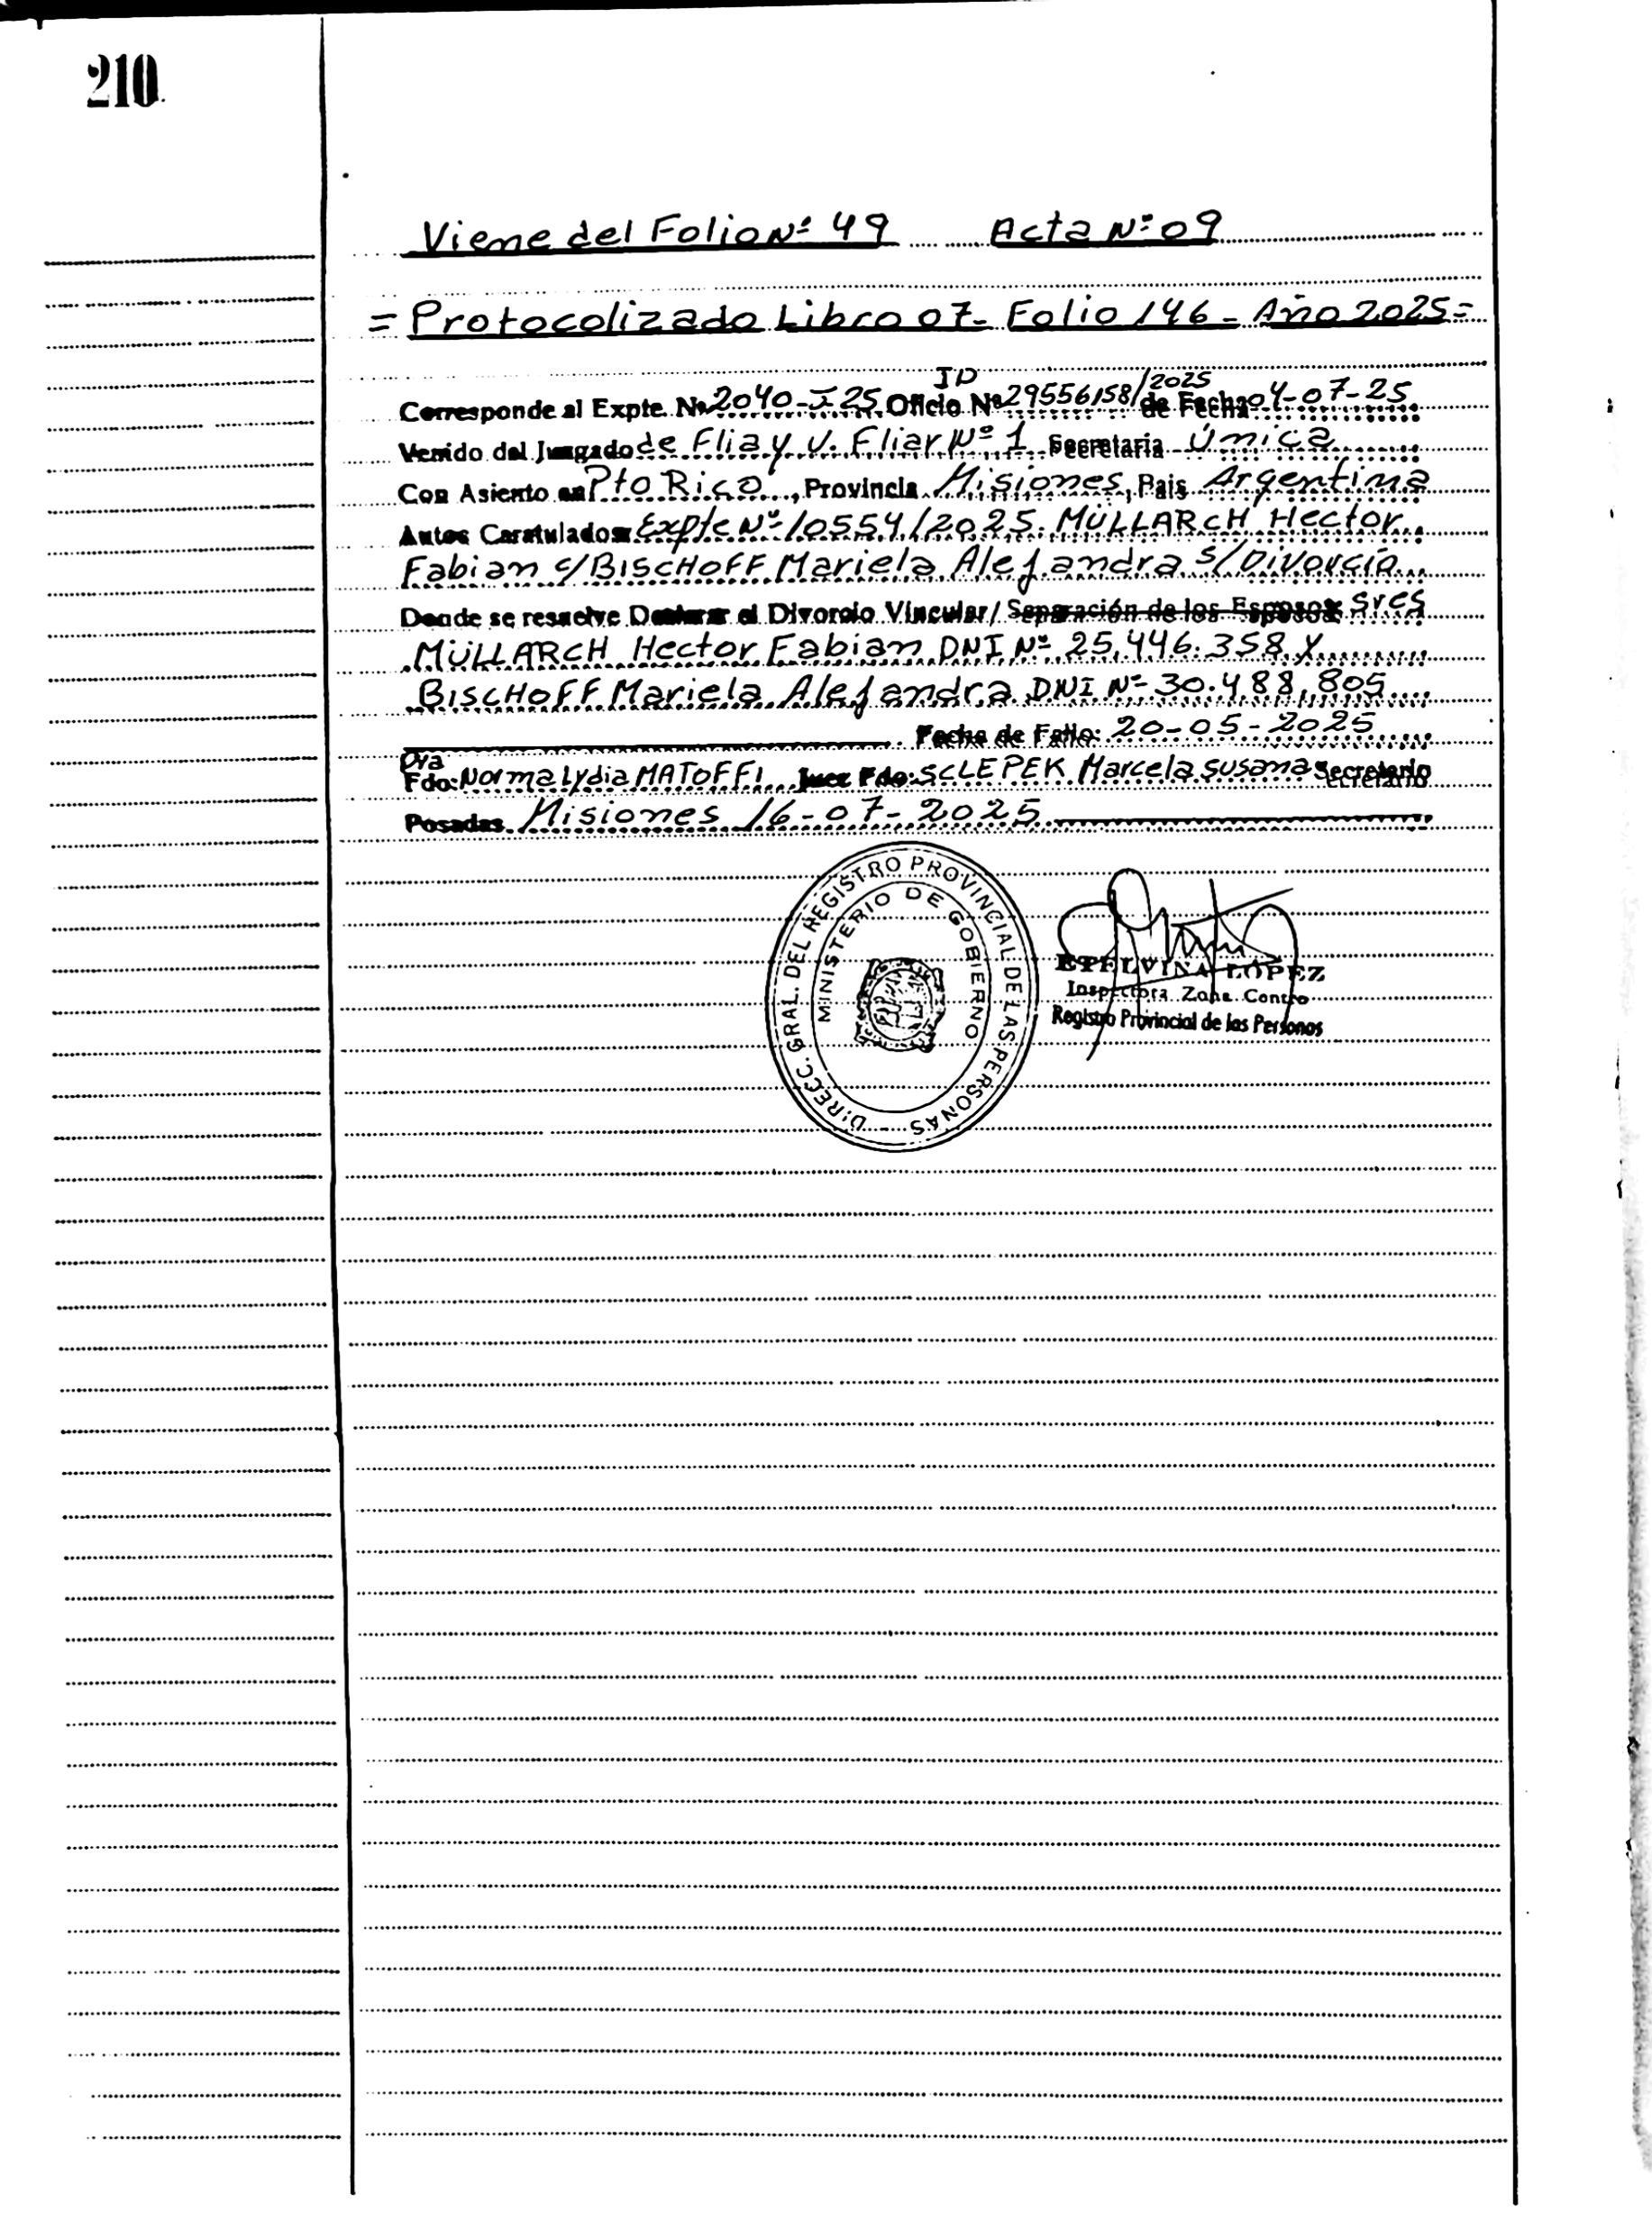 210
Viene del Folio Nº 49 Acta Nº 09
= Protocolizado Libro 07- Folio 146 - Año 2025=
Corresponde al Expte Nº 2040-I-25 Oficio Nº ID 29556158/2025 de Fecha 04-07-25
Venido del Juzgado de Flia y V. Fliar Nº 1 Secretaria Única
Con Asiento en Pto Rico, Provincia Misiones, Pais Argentina
Autos Caratulados Expte Nº 10554/2025. MÜLLARCH Hector
Fabian c/ BISCHOFF Mariela Alejandra s/ Divorcio
Donde se resuelve Declarar el Divorcio Vincular/ Separación de los Esposos: Sres
MÜLLARCH Hector Fabian DNI Nº 25.446.358 Y
BISCHOFF Mariela Alejandra DNI Nº 30.488.805
Fecha de Fallo: 20-05-2025
Dra
Fdo: Norma Lydia MATOFFI Juez Fdo: SCLEPEK Marcela Susana Secretario
Posadas Misiones 16-07-2025
DIRECC. GRAL. DEL REGISTRO PROVINCIAL DE LAS PERSONAS -
MINISTERIO DE GOBIERNO
ETELVINA LOPEZ
Inspectora Zona Centro
Registro Provincial de las Personas